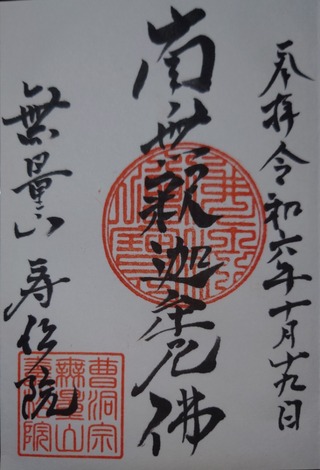 奉拝 令和六年十月十九日
南無釈迦牟尼佛
無量山 寿仙院
曹洞宗
無量山